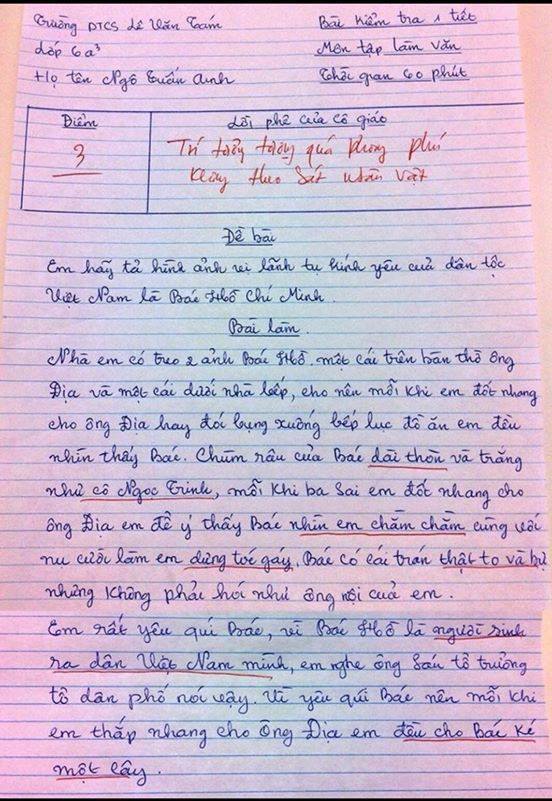 Trường PTCS Lê Văn Tám
Bài kiểm tra 1 tiết
Lớp 6a³
Môn tập làm văn
Họ tên Ngô Tuấn Anh
Thời gian 60 phút
Điểm
Lời phê của cô giáo
3
Trí tưởng tượng quá phong phú
Không theo sát nhân vật
Đề bài
Em hãy tả hình ảnh vị lãnh tụ kính yêu của dân tộc
Việt Nam là Bác Hồ Chí Minh.
Bài làm.
Nhà em có treo 2 ảnh Bác Hồ. một cái trên bàn thờ ông
Địa và một cái dưới nhà bếp, cho nên mỗi khi em đốt nhang
cho ông Địa hay đói bụng xuống bếp lục đồ ăn em đều
nhìn thấy Bác. Chùm râu của Bác dài thòn và trắng
như cô Ngọc Trinh, mỗi khi ba sai em đốt nhang cho
ông Địa em để ý thấy Bác nhìn em chằm chằm cùng với
nụ cười làm em dựng tóc gáy, Bác có cái trán thật to và bự
nhưng không phải hói như ông nội của em.
Em rất yêu quí Bác, vì Bác Hồ là người sinh
ra dân Việt Nam mình, em nghe ông Sáu tổ trưởng
tổ dân phố nói vậy. Vì yêu quí Bác nên mỗi khi
em thắp nhang cho Ông Địa em đều cho Bác ké
một cây.